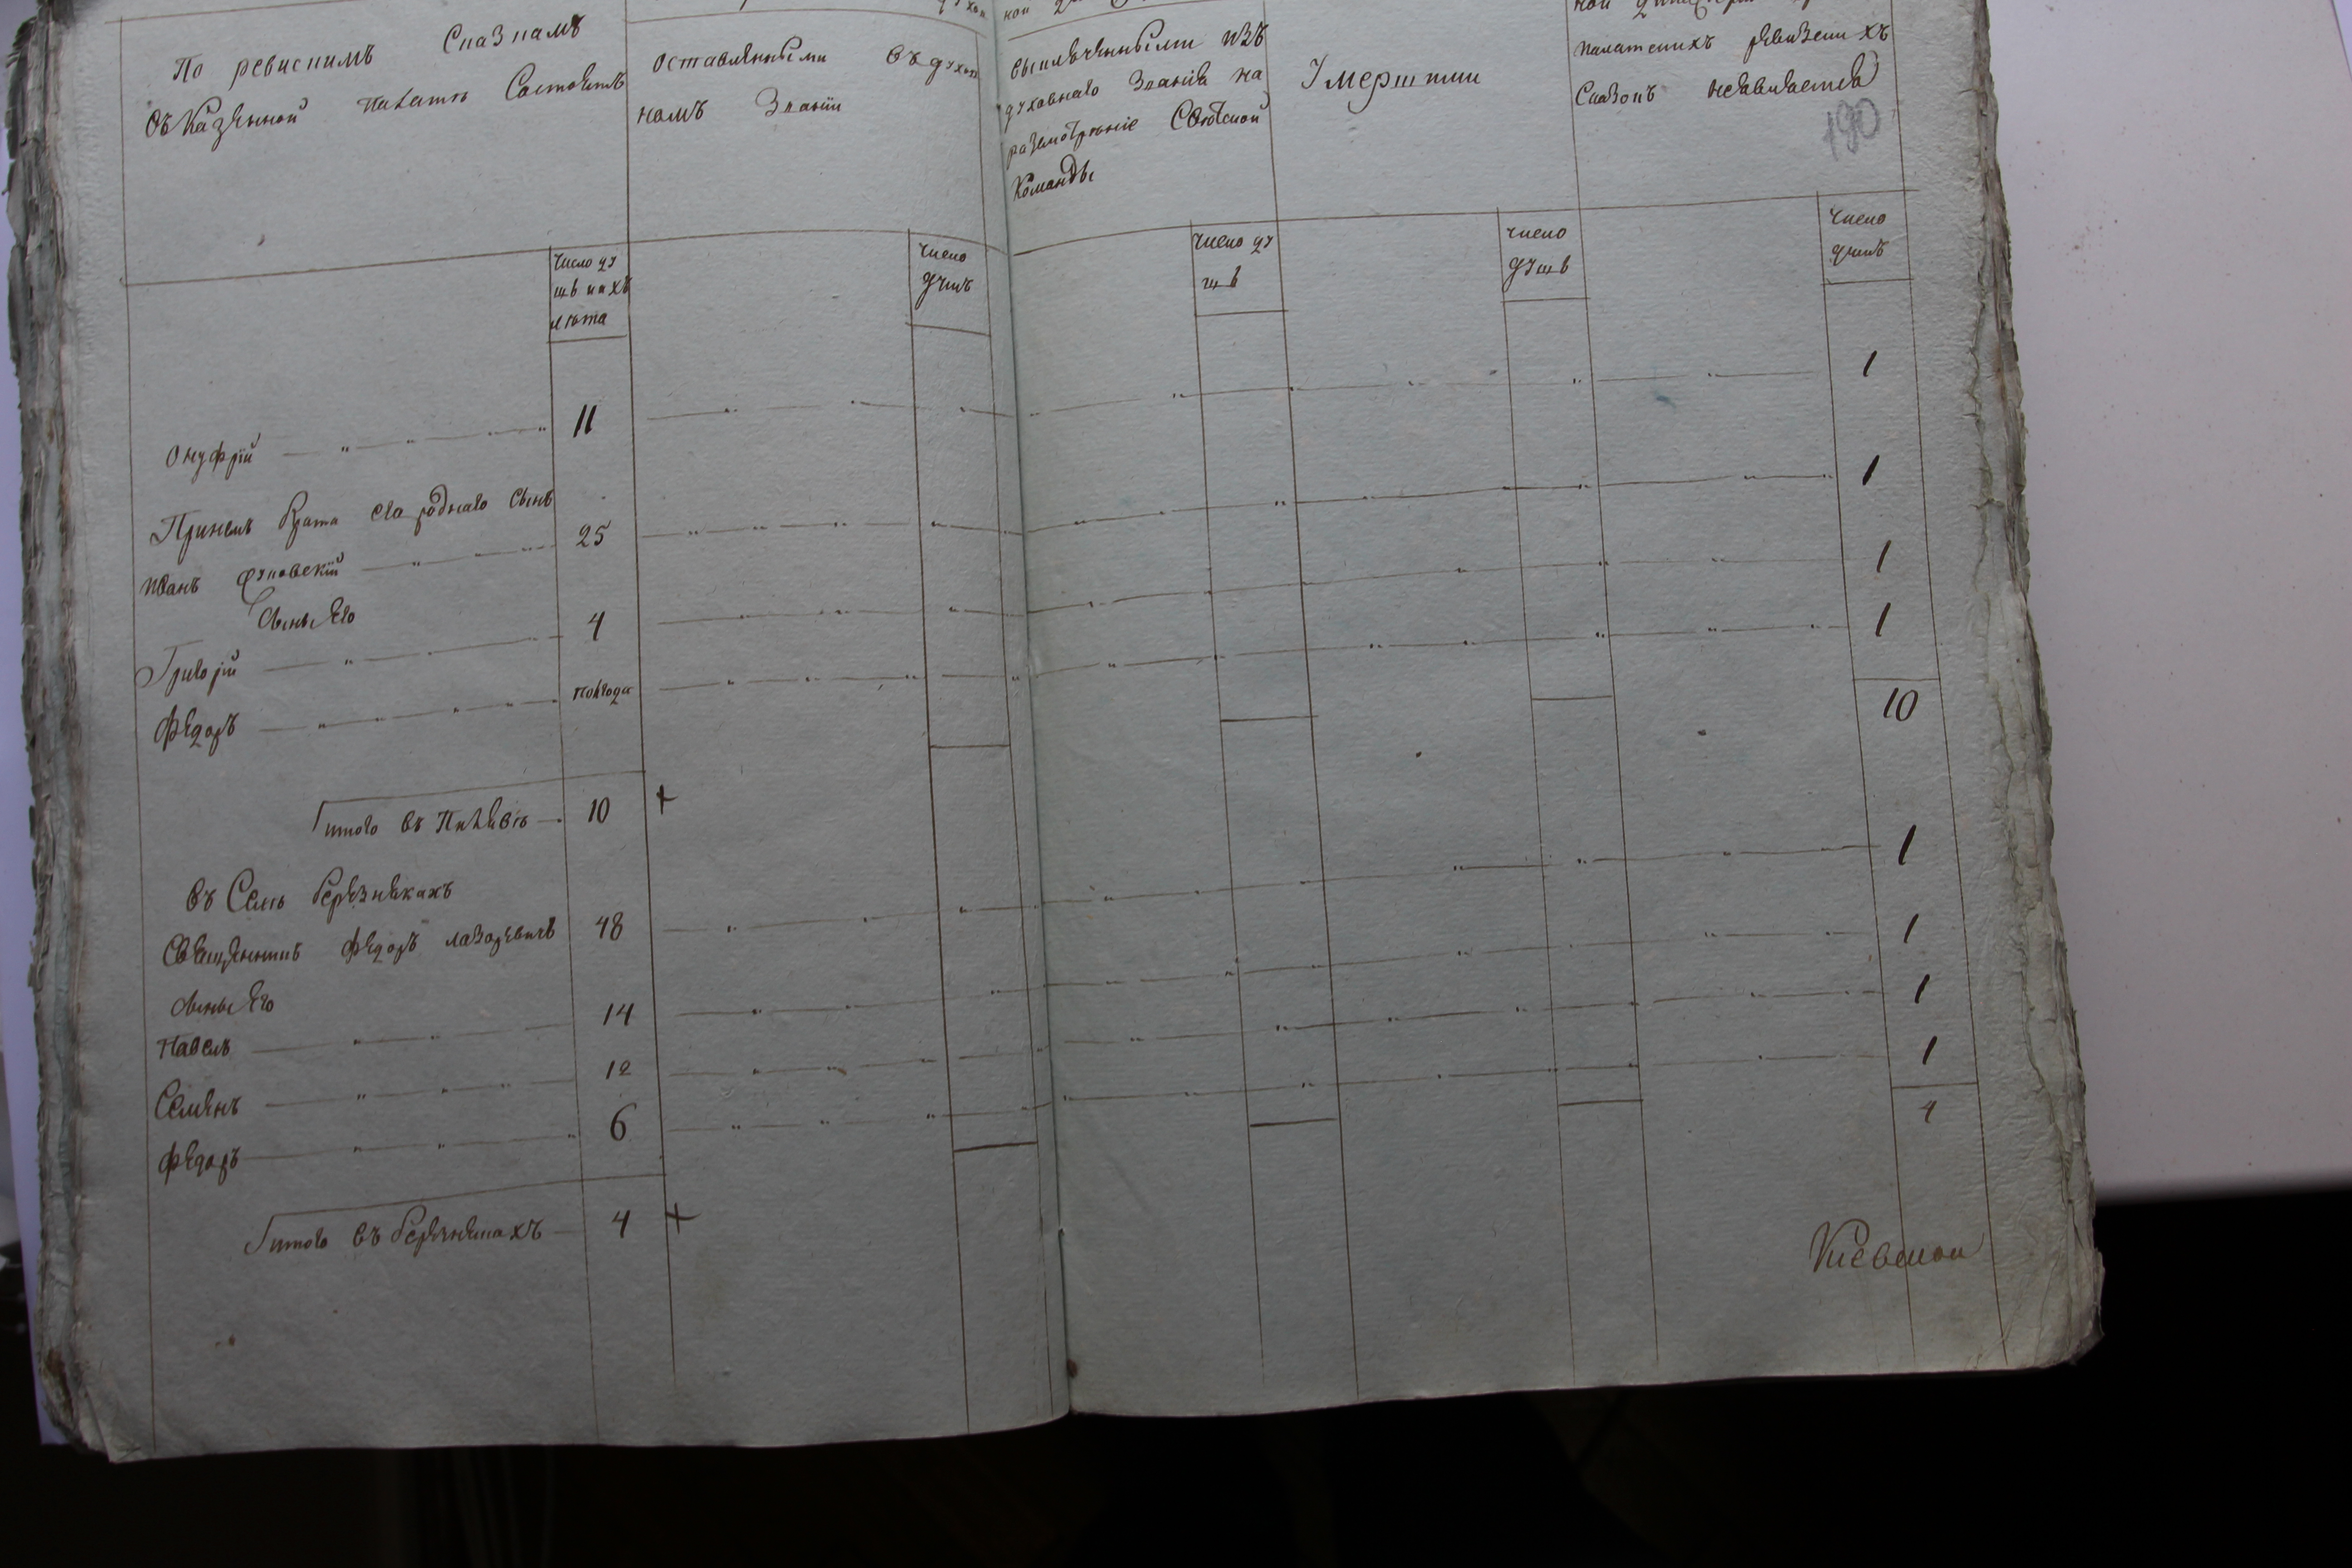 По ревискимъ Сказкамъ
въ Казенной палатѣ Состоитъ
оставленными въ духов
номъ Званіи
выключенными изъ
духовнаго Званія на
разсмотрѣніе Свѣтской
Команды
Умершими
палатскихъ ревизскихъ
Сказокъ неявляется
190
Число ду
шъ и ихъ
лѣта
число
душъ
число ду
шъ
число
душъ
число
душъ
Онуфрій 11 1
При немъ брата его роднаго сынъ
Иванъ 25 1
Сыны Его
Григорій 4 1
Федоръ полгода 1
10
итого въ 10 +
въ Селѣ Березнякахъ
Священникъ Федоръ лазоревичъ 48 1
Сыны Его
Павелъ 14 1
Семенъ 12 1
Федоръ 6 1
4
итого въ Березнякахъ 4 +
Киевской